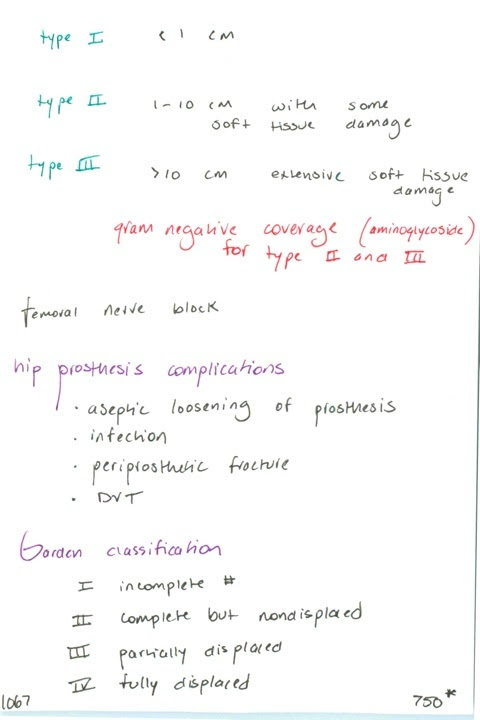 type I < 1 cm
type II 1-10 cm with some
soft tissue damage
type III >10 cm extensive soft tissue
damage
gram negative coverage (aminoglycoside)
for type II and III
femoral nerve block
hip prosthesis complications
· aseptic loosening of prosthesis
· infection
· periprosthetic fracture
· DVT
Garden classification
I incomplete #
II complete but nondisplaced
III partially displaced
IV fully displaced
1067 750*